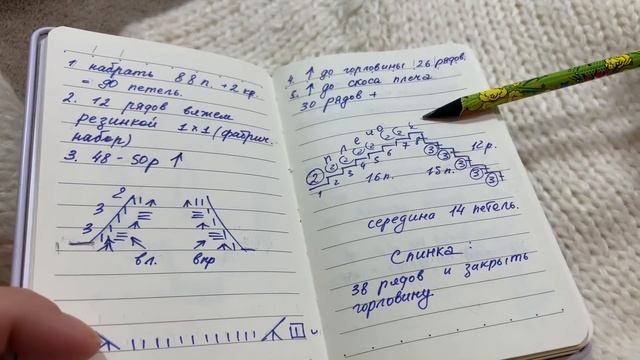 1 набрать 88п. +2 кр.
= 90 петель.
2. 12 рядов вяжем
резинкой 1х1 (фабрич.
набор)
3. 48 - 50р ↑
2
3
3
вл. впр
1
4. ↑ до горловины 26 рядов.
5. ↑ до скоса плеча
30 рядов +
плечо
2 2 2 2 2 2 2
1 2 3 4 5 6 7 8
3 3 3 3 3
16п. 15п. 12р.
середина 14 петель.
Спинка:
38 рядов и закрыть
горловину